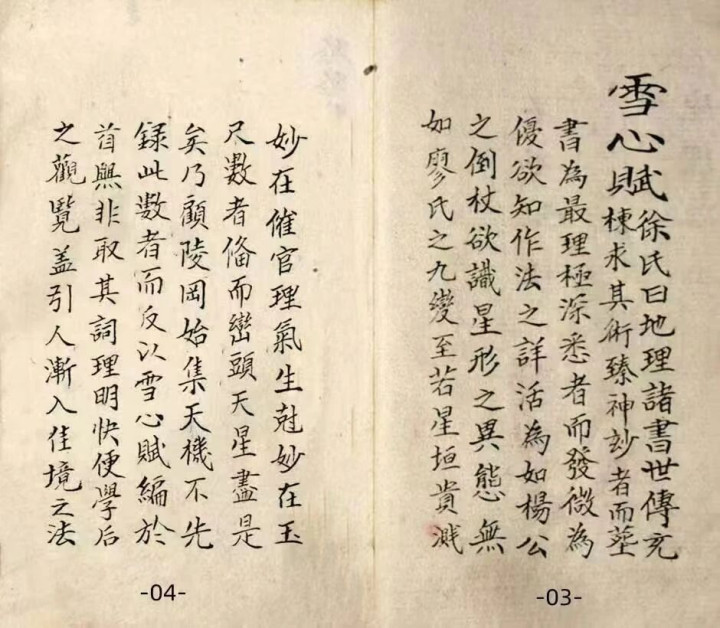 雪心賦 徐氏曰地理諸書世傳充
棟求其術臻神玅者而塟
書為最理極深悉者而發微為
優欲知作法之詳活為如楊公
之倒杖欲識星形之異態無
如廖氏之九變至若星垣貴濺
-03-
妙在催官理氣生尅妙在玉
尺數者俻而巒頭天星盡是
矣乃顧陵岡始集天機不先
録此數者而反以雪心賦編於
首與非取其詞理明快便學后
之觀覽盖引人漸入佳境之法
-04-